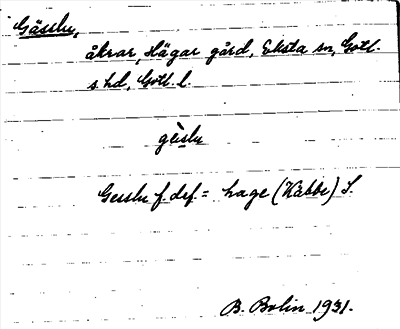 Gässlu,
åkrar, Hägar gård, Eksta sn, Gotl.
s. hd, Gotl. l.
gèislu
Gesslu f. def. = hage (Kabbe) S.
B. Bolin 1931.